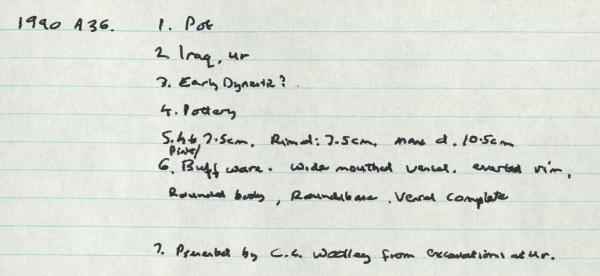 1990 A36. 1. Pot
2 Iraq, ur
3. Early Dynastic?
4. Pottery
5. ht 7.5cm. Rim d: 7.5cm. max d. 10.5cm
Pink/
6. Buff ware. Wide mouthed vessel. everted rim,
Rounded body, Round base. Vessel complete
7. Presented by C.L. Woolley from excavations at ur.